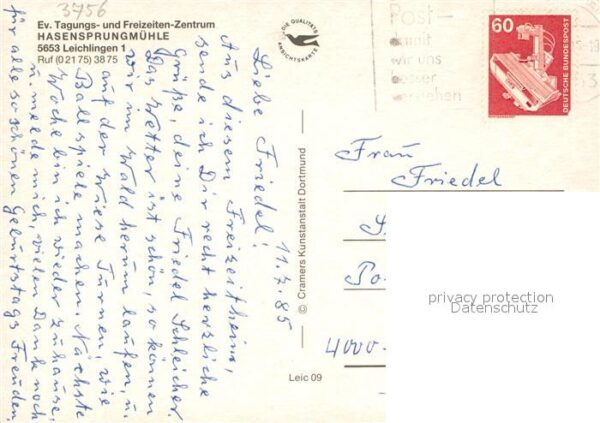 3756
Ev. Tagungs- und Freizeiten-Zentrum
HASENSPRUNGMÜHLE
5653 Leichlingen 1
Ruf (0 21 75) 38 75
DIE QUALITÄTS
ANSICHTSKARTE
11.7.85
Liebe Friedel!
Aus diesem Freizeitheim,
sende ich Dir recht herzliche
Grüße, deine Friedel Schleicher.
Das Wetter ist schön, so können
wir im Wald herum laufen, u.
auf der Wiese Turnen, wie
Ballspiele machen. Nächste
Woche bin ich wieder zuhause,
u. melde mich, vielen Dank noch
für alle so schönen Geburtstags Freuden.
© Cramers Kunstanstalt Dortmund
Leic 09
Post-
damit
wir uns
besser
verstehen
60
DEUTSCHE BUNDESPOST
Frau
Friedel
S
Po
4000-
privacy protection
Datenschutz